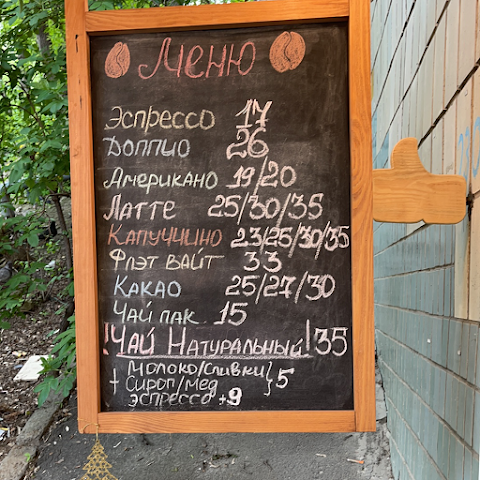 Меню
Эспрессо 17
Доппио 26
Американо 19/20
Латте 25/30/35
Капуччино 23/25/30/35
Флэт вайт 33
Какао 25/27/30
Чай пак 15
!Чай Натуральный! 35
Молоко/сливки
+ Сироп/мед } 5
эспрессо +9